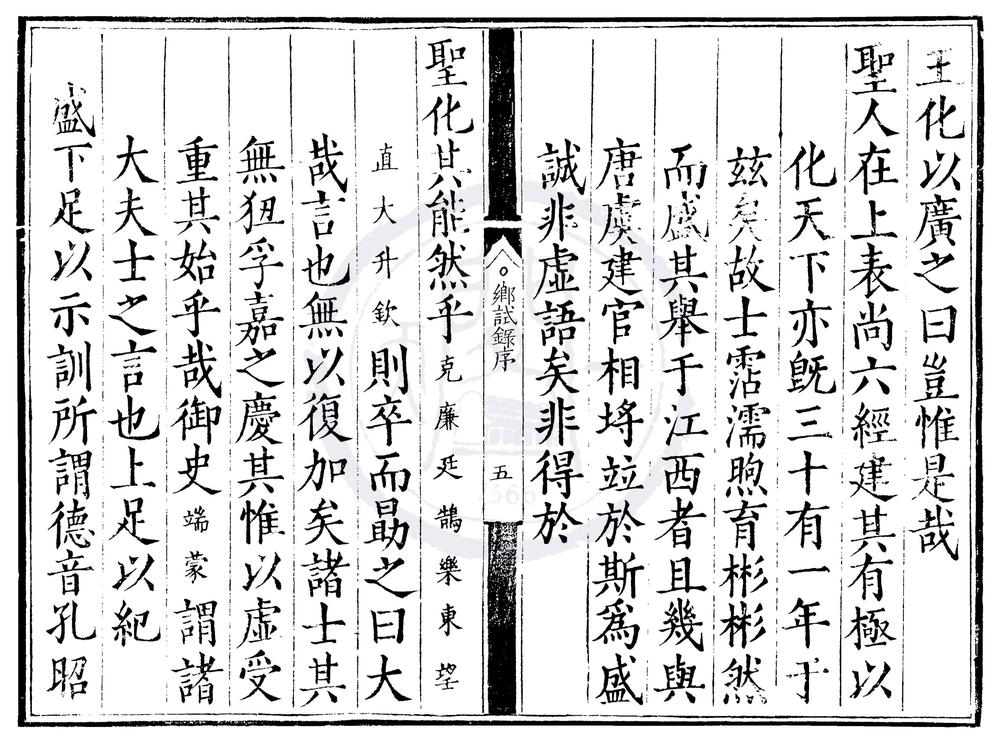 王化以廣之曰豈惟是哉
聖人在上表尚六經建其有極以
化天下亦旣三十有一年于
玆矣故士霑濡煦育彬彬然
而盛其舉于江西者且幾與
唐虞建官相埓竝於斯爲盛
誠非虛語矣非得於
鄉試錄序
五
聖化其能然乎克廉廷鵠樂東望
直大升欽則卒而勗之曰大
哉言也無以復加矣諸士其
無狃孚嘉之慶其惟以虛受
重其始乎哉御史端蒙謂諸
大夫士之言也上足以紀
盛下足以示訓所謂德音孔昭